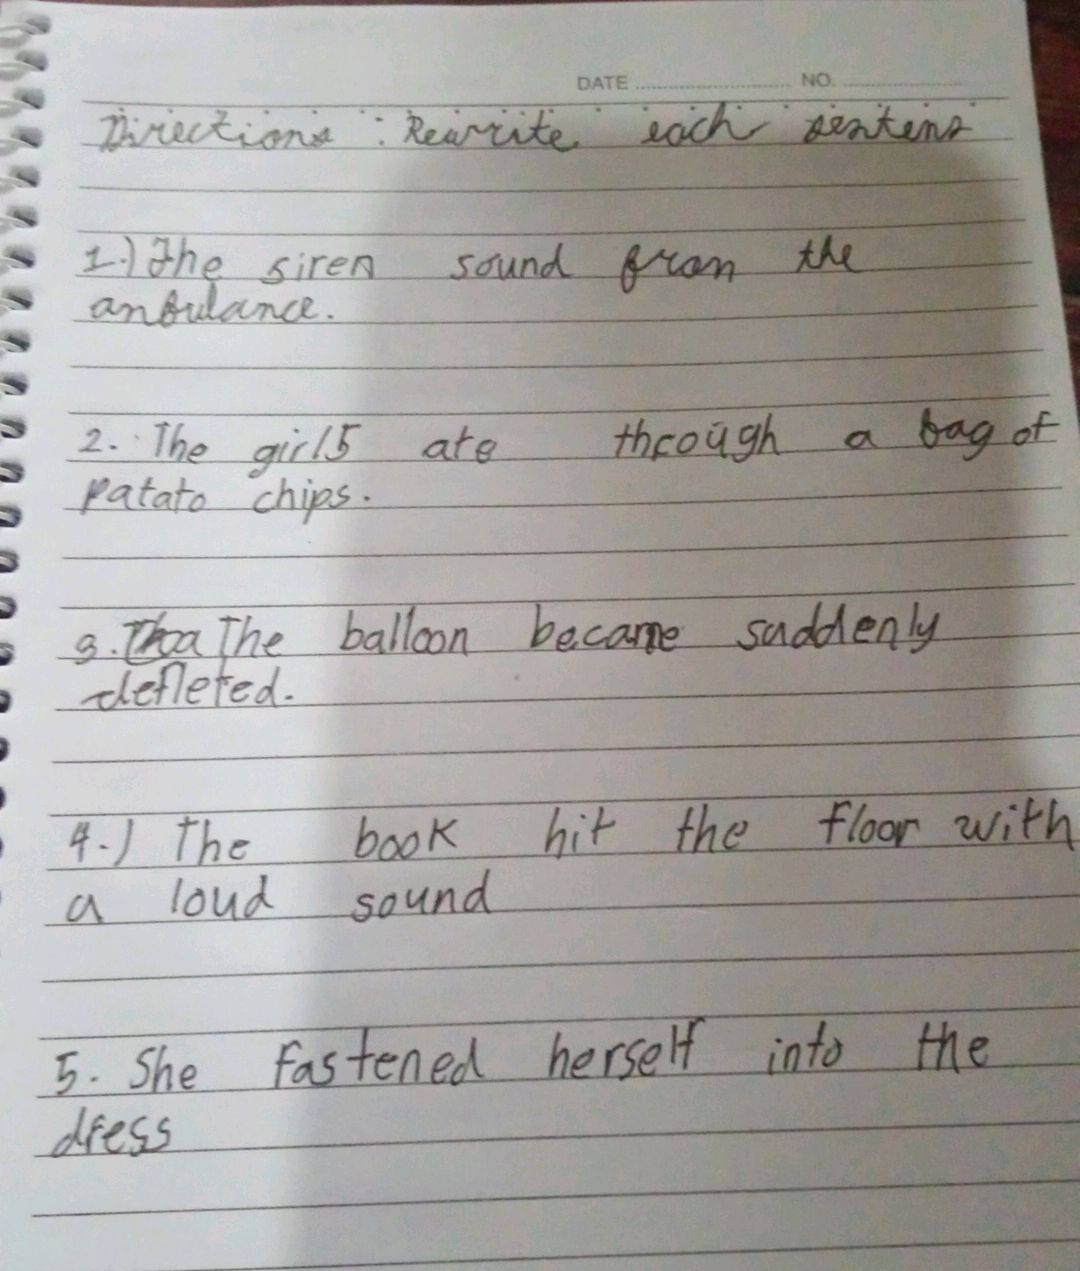 DATE ............ NO. ............
Directions : Rewrite each sentens
1.) The siren sound from the
anbulance.
2. The girls ate through a bag of
Patato chips.
3. The balloon became suddenly
defleted.
4.) The book hit the floor with
a loud sound
5. She fastened herself into the
dress